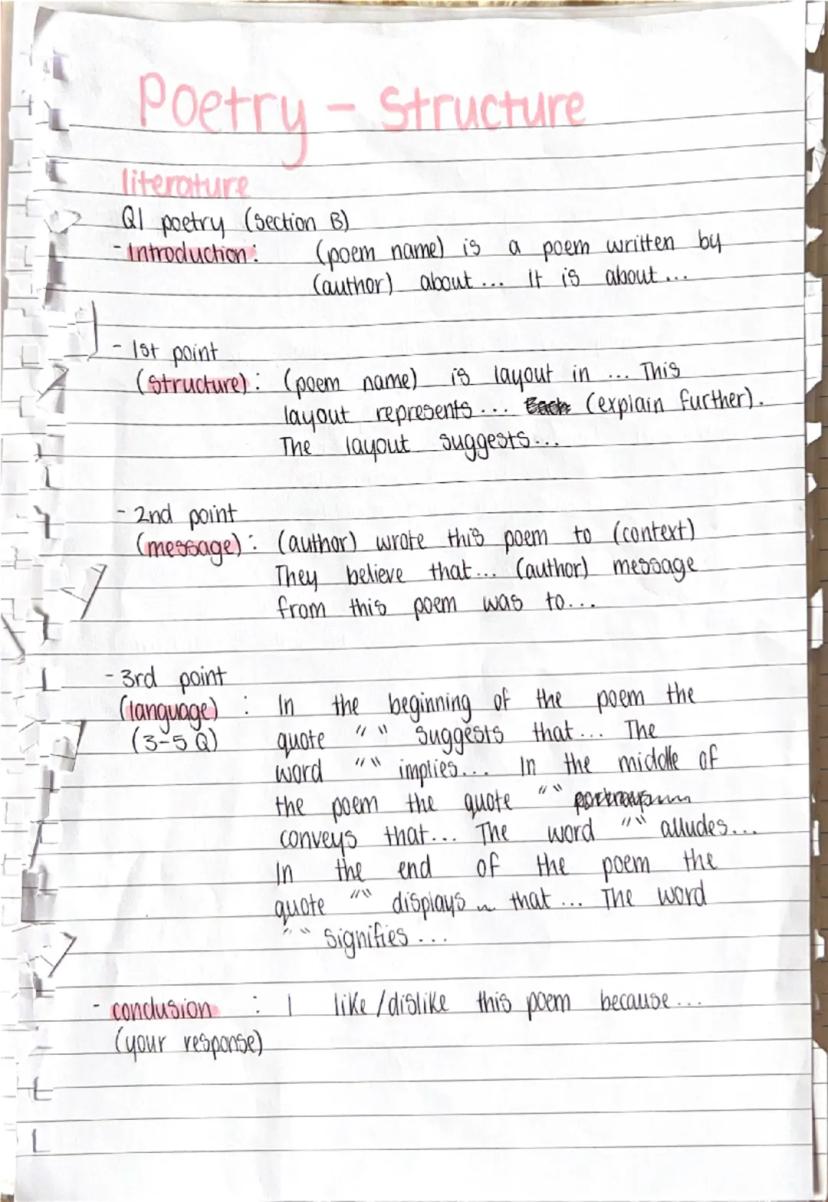 Poetry - Structure
literature
Q1 poetry (section B)
- Introduction: (poem name) is a poem written by
(author) about... It is about...
- 1st point
(structure): (poem name) is layout in ... This
layout represents... (explain further).
The layout suggests...
- 2nd point
(message): (author) wrote this poem to (context)
They believe that... (author) message
from this poem was to...
- 3rd point
(language) : In the beginning of the poem the
(3-5 Q) quote " " suggests that... The
word " " implies... In the middle of
the poem the quote " "
conveys that... The word " " alludes...
In the end of the poem the
quote " " displays that... The word
" " signifies...
- conclusion : I like/dislike this poem because...
(your response)